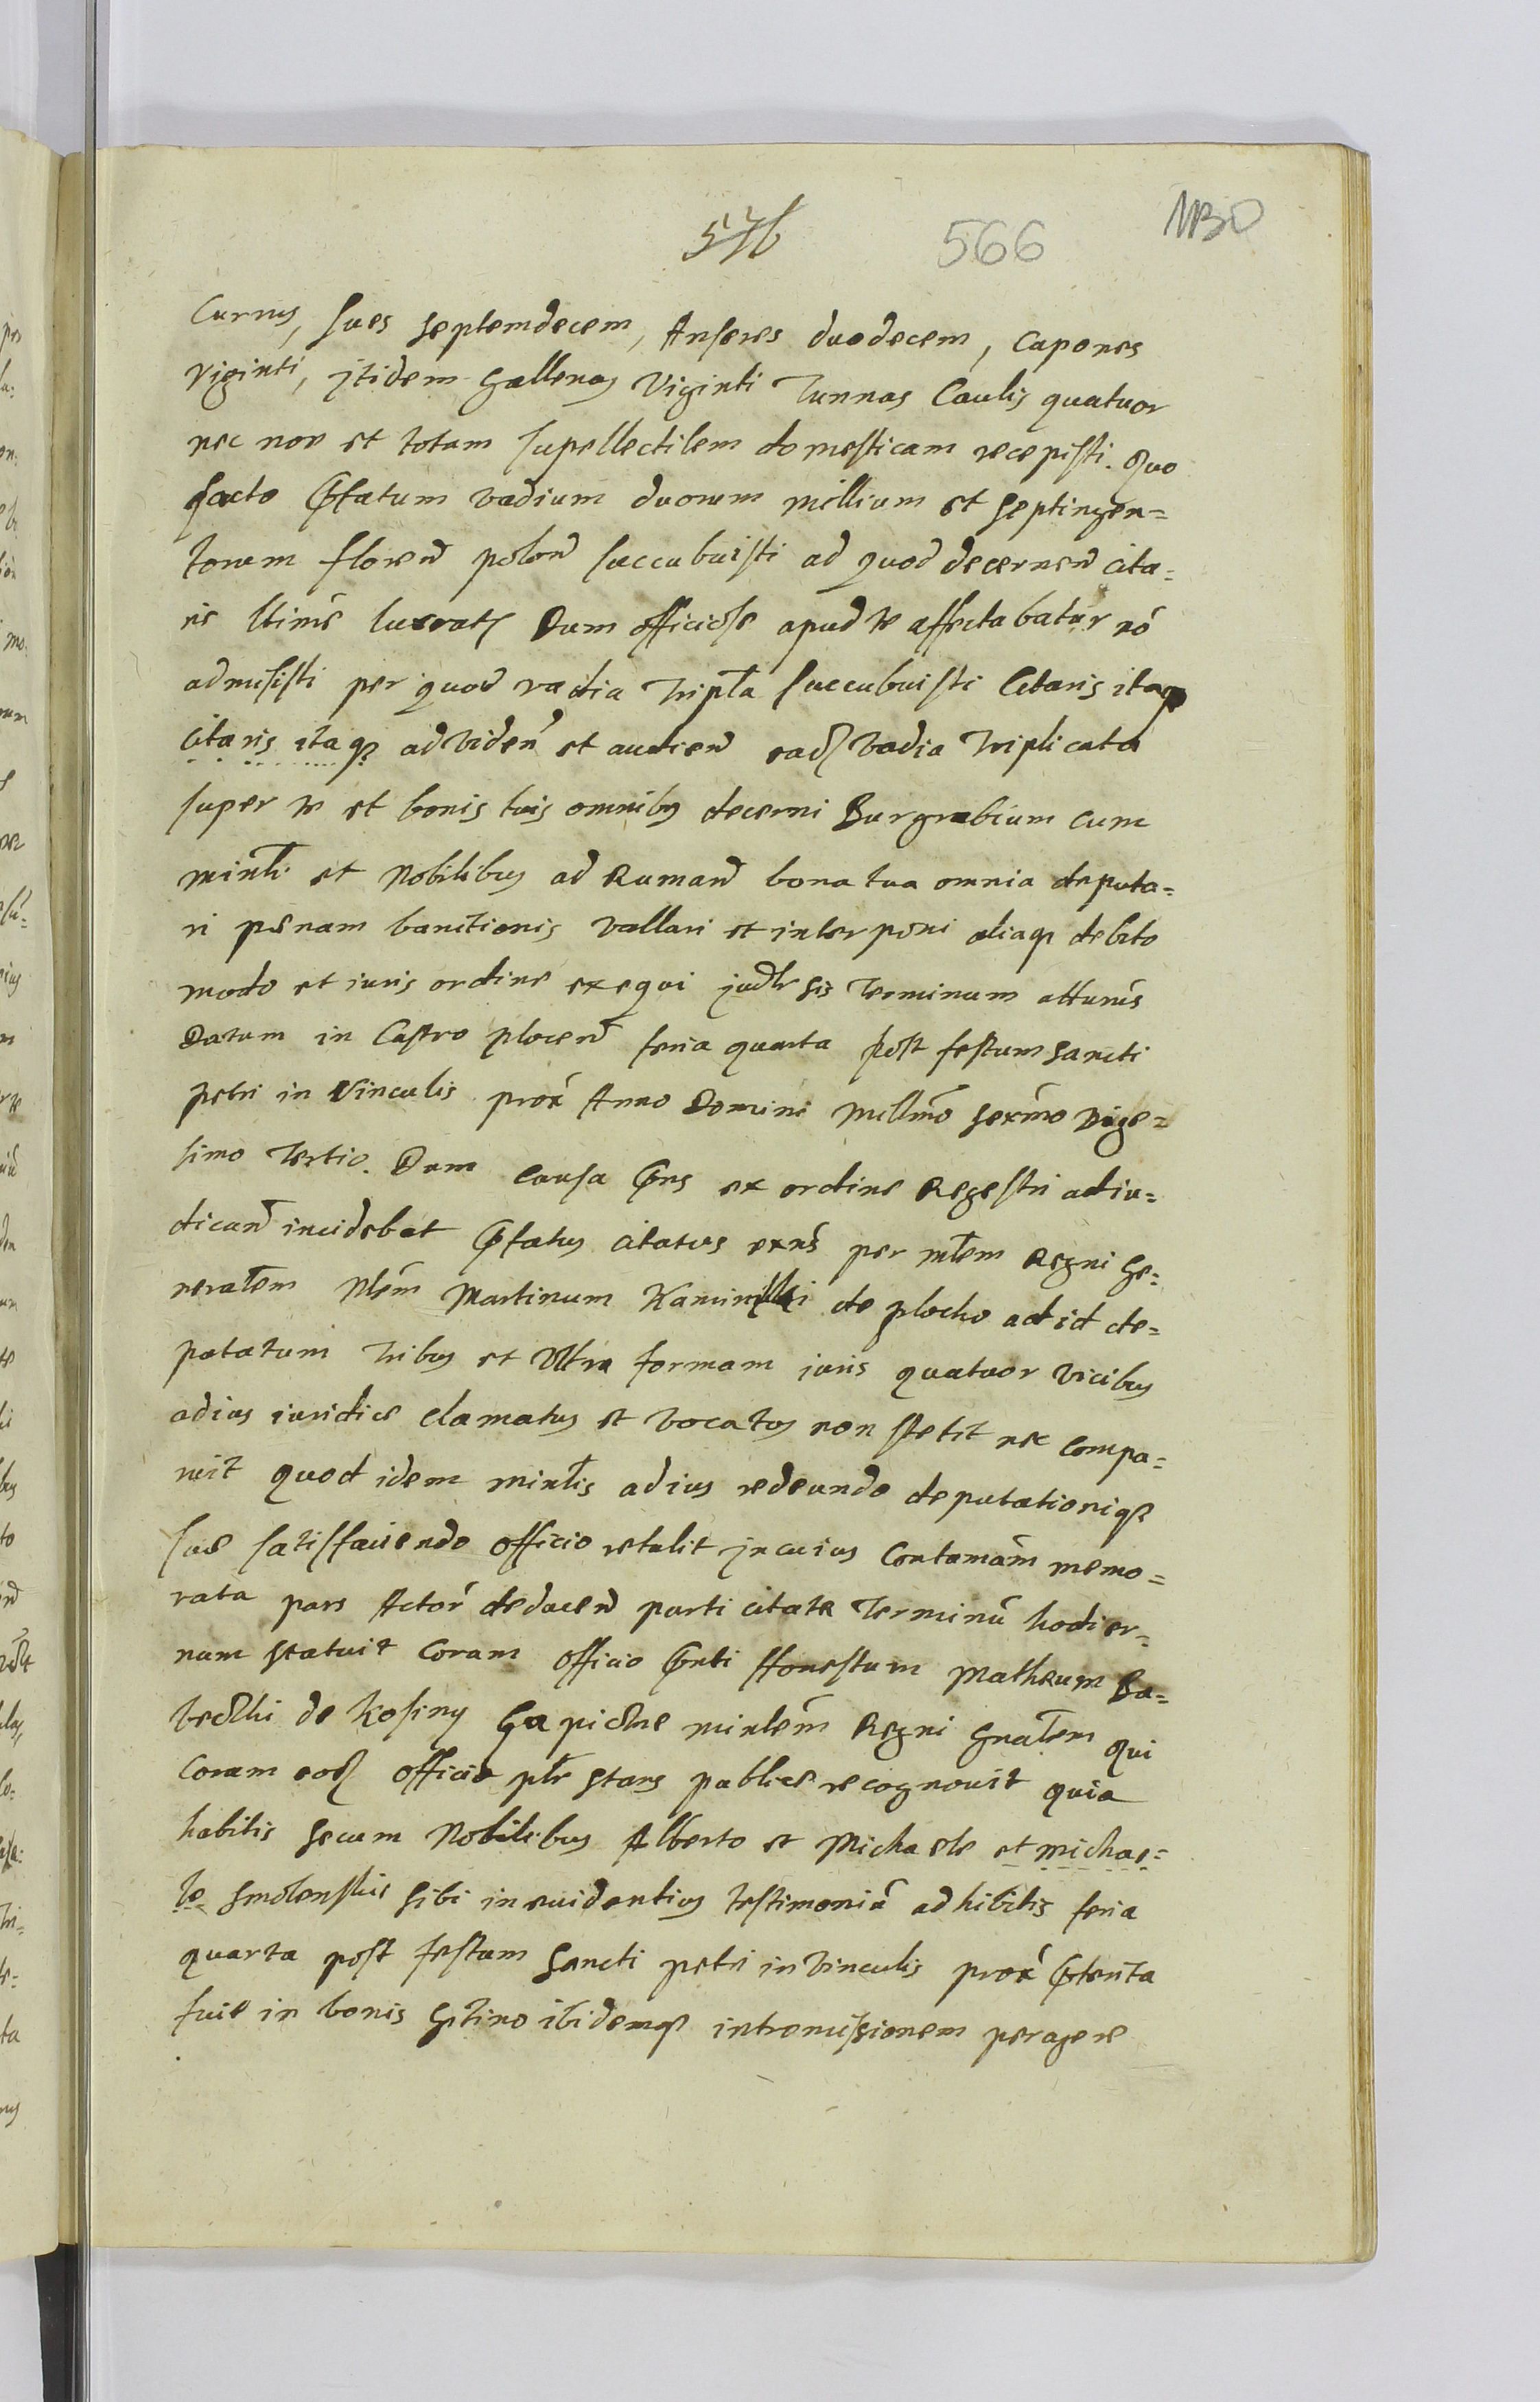 576 566 1130
Currus, sues septemdecem, Anseres duodecem, Capones
viginti, jtidem Gallenas Viginti Tunnas Caulis quatuor
nec non et totam supellectilem domesticam recepisti. Quo
facto Pfatum vadium duorum millium et septingen=
torum floren polon succubuisti ad quod decernen cita=
ris ltime lucrat Dum officiose apud te affectabatur no
admisisti per quod vadia tripla succubuisti Citaris itaq
citaris itaq ad viden et audien ead vadia triplicata
super te et bonis tuis omnibus decerni Burgrabium cum
minli et Nobilibus ad Ruman bona tua omnia deputa=
ri penam banitionis vallari et interponi aliaq debito
modo et iuris ordine exequi judr sis Terminum atturus
Datum in Castro plocen feria quarta post festum sancti
petri in Vinculis prox Anno Domini Millmo sexmo vige=
simo Tertio. Dum Causa Pns ex ordine Regestri adiu=
dican incidebat Pfatus citatus exns per mlem Regni Ge=
neralem Nlem Martinum de plocko ad id de=
putatum tribus et Ultra formam iuris quatuor vicibus
ad ius iuridice clamatus et vocatus non stetit nec compa=
ruit quod idem minlis ad ius redeundo deputationiq
sue satisfaciendo officio retulit jn cuius Contumam memo=
rata pars Actor deducen parti citate Terminu hodier=
num statuit Coram officio Pnti Honestum Matheum Ba=
de Kosiny minlem Regni Gnalem qui
Coram eod officio plr stans publice recognouit quia
habitis secum Nobilibus Alberto et Michaele et michae=
le Smolenskie sibi in euidentius testimoniu adhibitis feria
quarta post festum Sancti petri in vinculis prox Pterita
fuit in bonis Gitino ibidemq intromissionem peragere